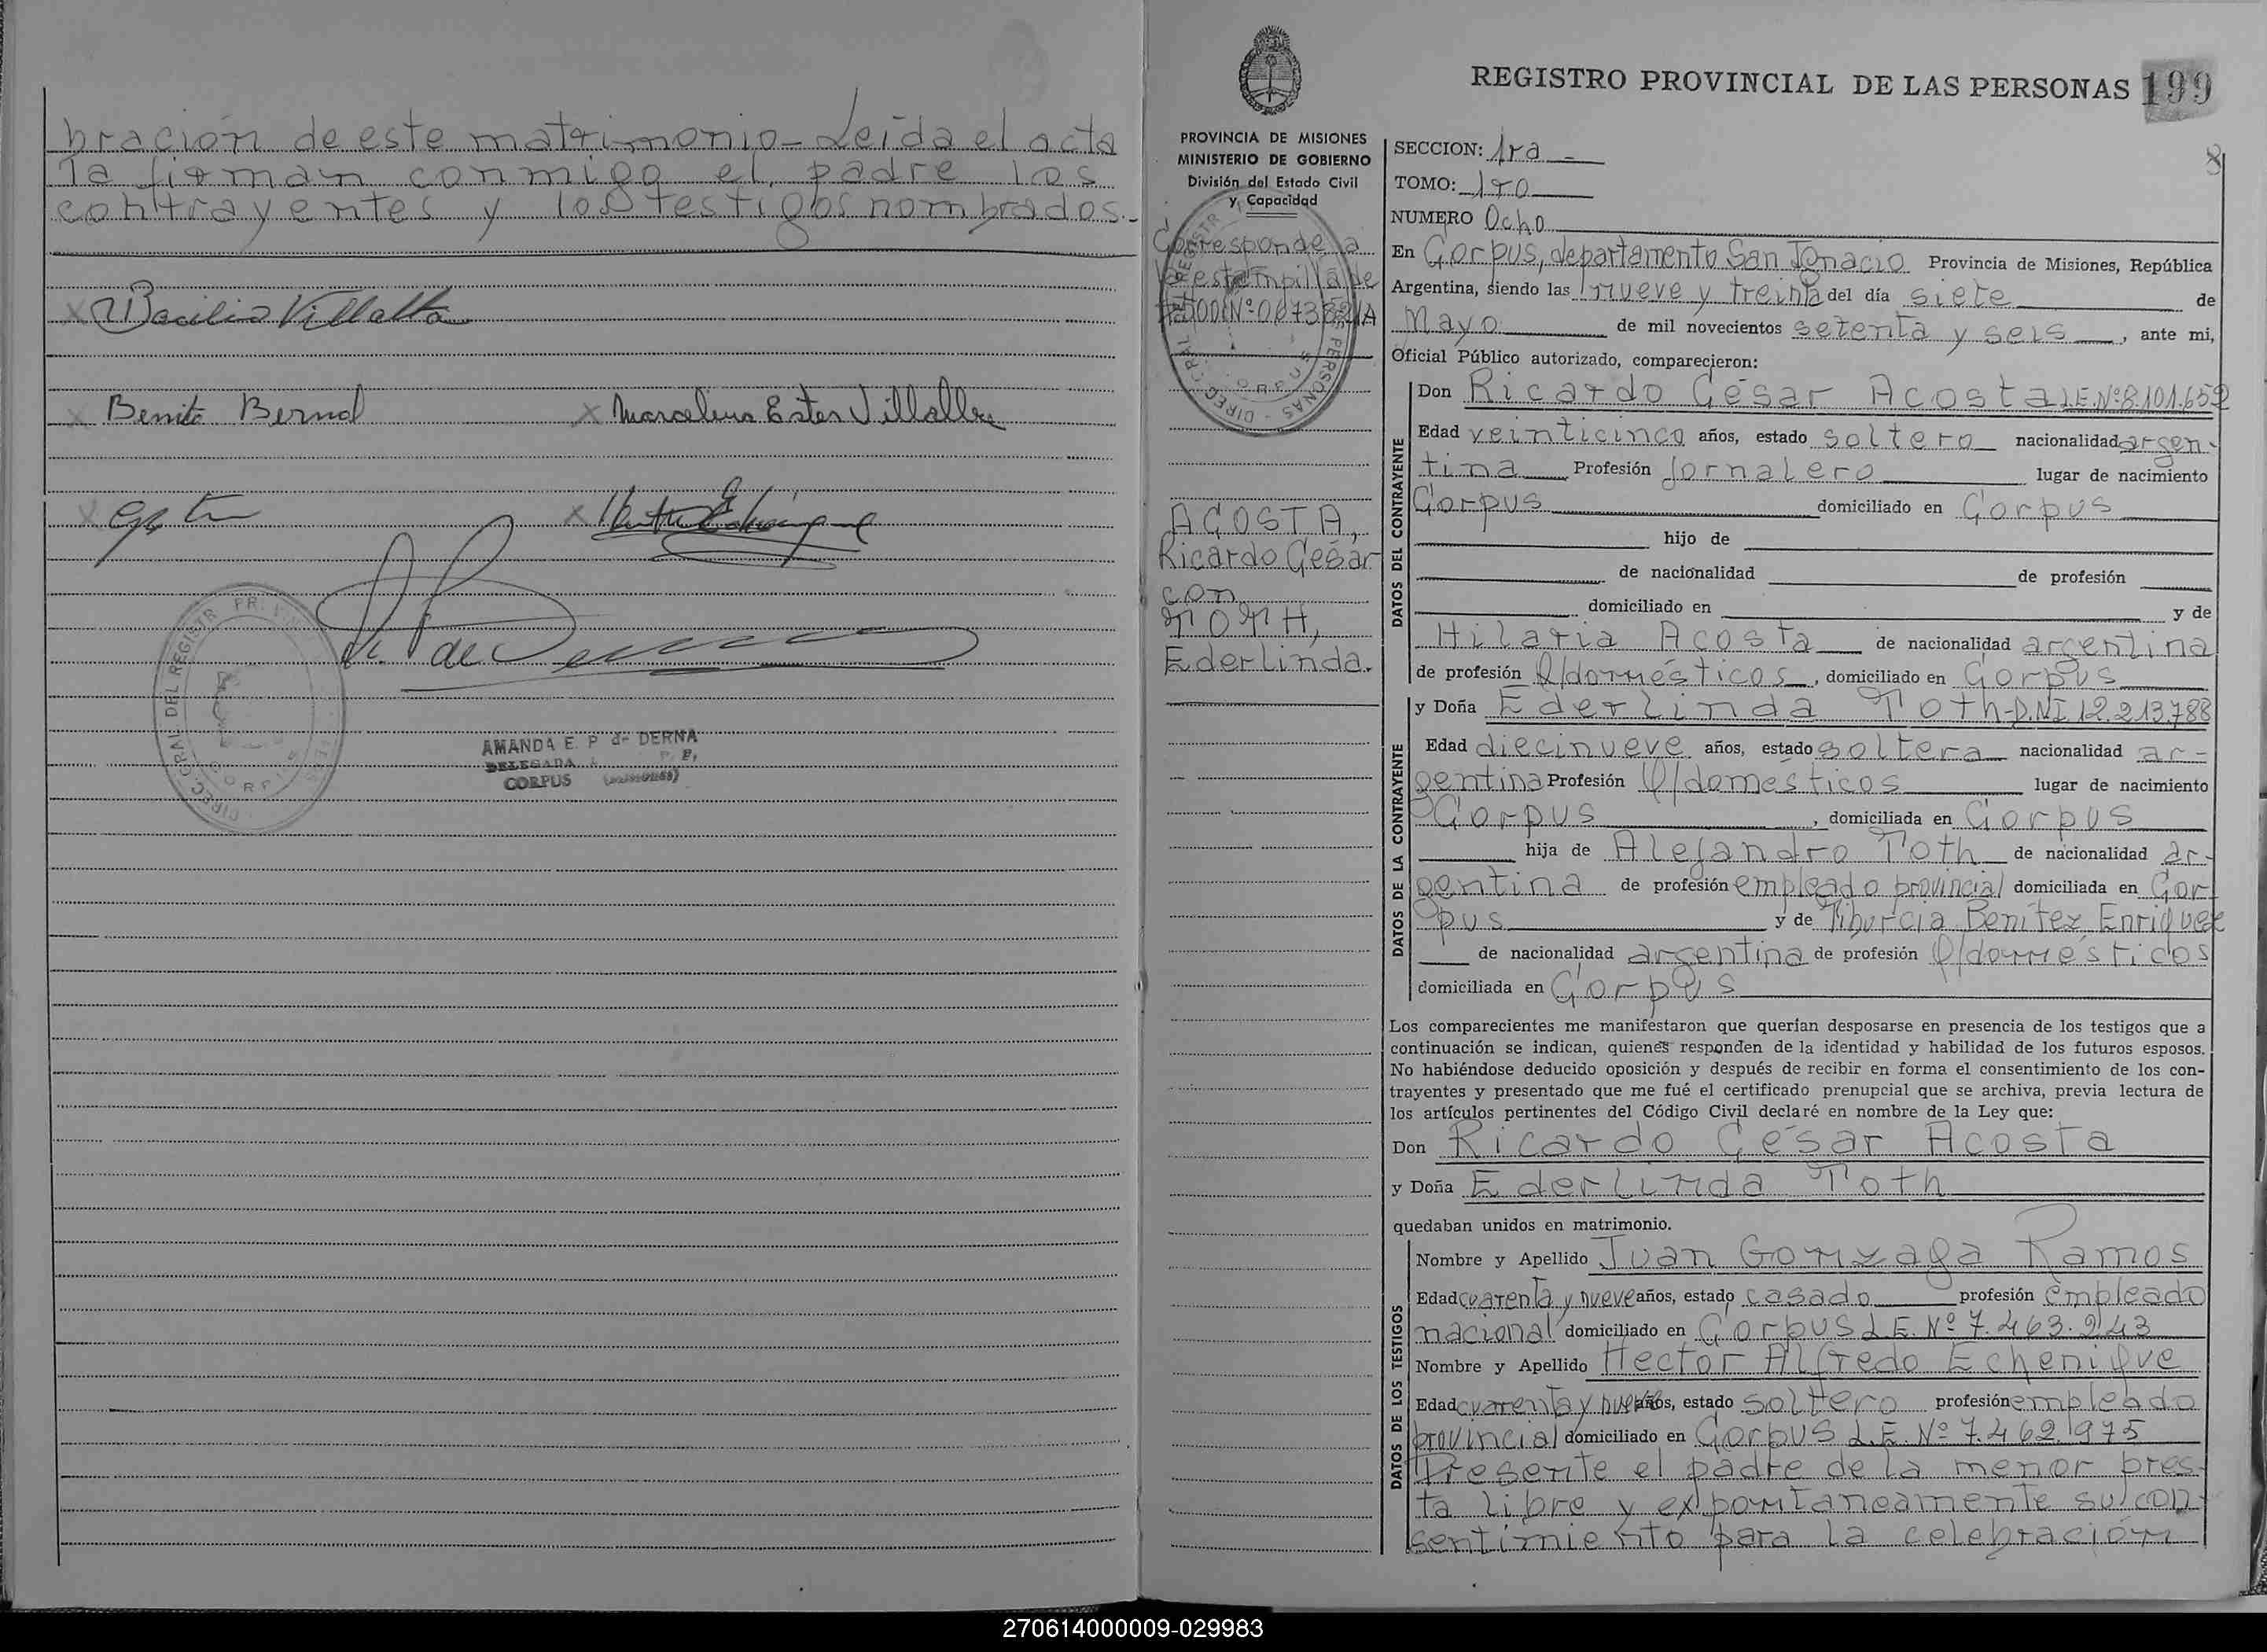 bración de este matrimonio - Leída el acta
la firman conmigo el padre los
contrayentes y los testigos nombrados.-
Bacilio Villalba
Benito Bernal
Marcelina Ester Villalba
AMANDA E. P de DERNA
DELEGADA
CORPUS (MISIONES)
REGISTRO PROVINCIAL DE LAS PERSONAS 199
PROVINCIA DE MISIONES
MINISTERIO DE GOBIERNO
División del Estado Civil
y Capacidad
Corresponde a
la estampilla de
ACOSTA,
Ricardo César
con
TOTH,
Ederlinda.
8
SECCION: 1ra -
TOMO: 1ro
NUMERO Ocho
En Corpus, departamento San Ignacio Provincia de Misiones, República
Argentina, siendo las nueve y treinta del día siete de
Mayo de mil novecientos setenta y seis, ante mi,
Oficial Público autorizado, comparecieron:
DATOS DEL CONTRAYENTE
Don Ricardo César Acosta L.E.Nº8.101.652
Edad veinticinco años, estado soltero nacionalidad argen-
tina Profesión Jornalero lugar de nacimiento
Corpus domiciliado en Corpus
hijo de
de nacionalidad de profesión
domiciliado en y de
Hilaria Acosta de nacionalidad argentina
de profesión Q/domésticos, domiciliado en Corpus
DATOS DE LA CONTRAYENTE
y Doña Ederlinda Toth-D.N.I.12.213.788
Edad diecinueve años, estado soltera nacionalidad ar-
gentina Profesión Q/domésticos lugar de nacimiento
Corpus, domiciliada en Corpus
hija de Alejandro Toth de nacionalidad ar-
gentina de profesión empleado provincial domiciliada en Cor
pus y de Tiburcia Benítez Enriquez
de nacionalidad argentina de profesión Q/domésticos
domiciliada en Corpus
Los comparecientes me manifestaron que querían desposarse en presencia de los testigos que a
continuación se indican, quienes responden de la identidad y habilidad de los futuros esposos.
No habiéndose deducido oposición y después de recibir en forma el consentimiento de los con-
trayentes y presentado que me fué el certificado prenupcial que se archiva, previa lectura de
los artículos pertinentes del Código Civil declaré en nombre de la Ley que:
Don Ricardo César Acosta
y Doña Ederlinda Toth
quedaban unidos en matrimonio.
DATOS DE LOS TESTIGOS
Nombre y Apellido Juan Gonzaga Ramos
Edad cuarenta y nueve años, estado casado profesión empleado
nacional domiciliado en Corpus L.E. Nº 7.463.943
Nombre y Apellido Hector Alfredo Echenique
Edad cuarenta y nueve años, estado soltero profesión empleado
provincial domiciliado en Corpus L.E. Nº 7.462.975
Presente el padre de la menor pres-
ta libre y expontaneamente su con-
sentimiento para la celebración
270614000009-029983